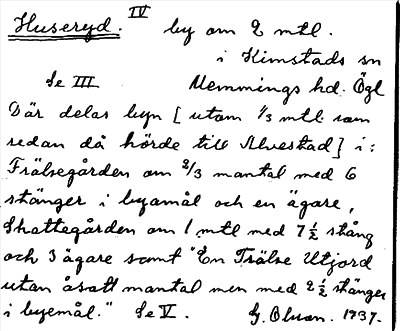 Huseryd. IV by om 2 mtl.
i Kimstads sn
Se III Memmings hd. Ögl
Där delas byn [utom 1/3 mtl som
redan då hörde till Alvestad] i:
Frälsegården om 2/3 mantal med 6
stänger i byamål och en ägare,
Skattegården om 1 mtl med 7 1/2 stång
och 3 ägare samt "En Frälse Utjord
utan åsatt mantal men med 2 1/2 stänger
i byemål." Se V. G. Olsson. 1737.